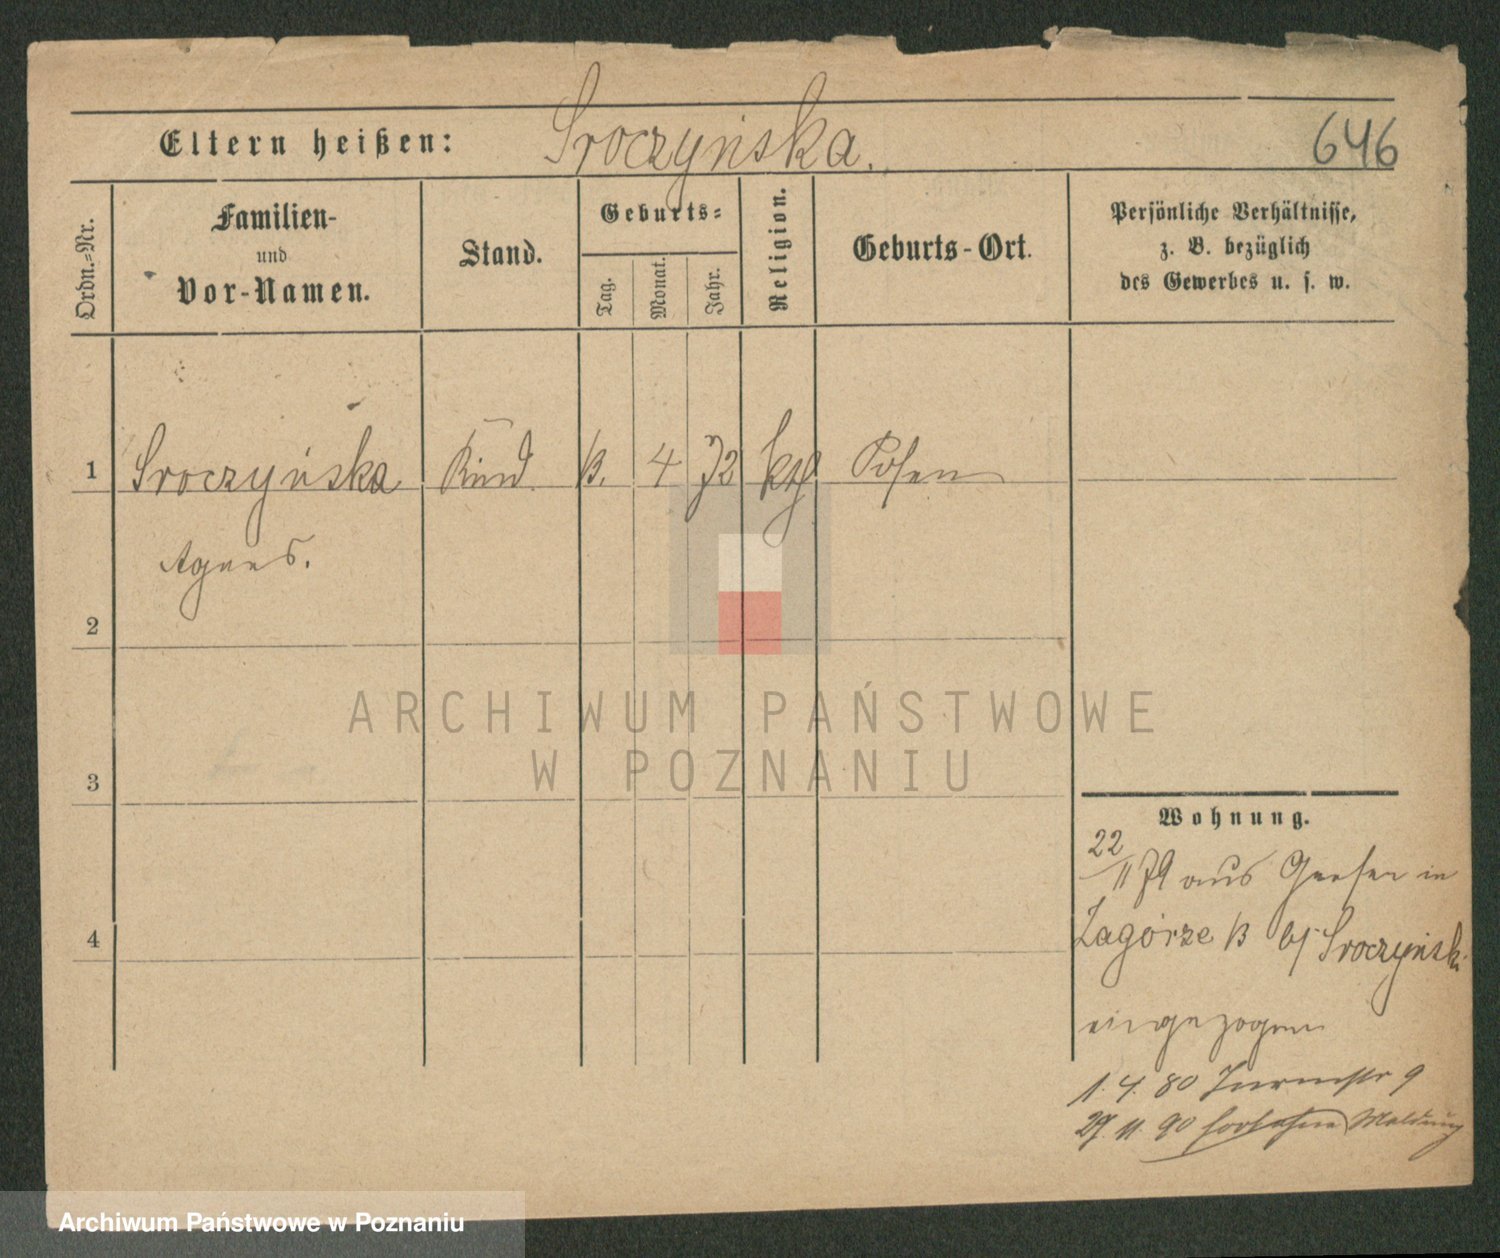 Eltern heißen: Sroczyńska. 646
Ordn.-Nr.
Familien-
und
Vor-Namen.
Stand.
Geburts-
Tag.
Monat.
Jahr.
Religion.
Geburts-Ort.
Persönliche Verhältnisse,
z. B. bezüglich
des Gewerbes u. s. w.
1 Sroczyńska Kind 13. 4 72 kth Posen
Agnes.
2
3
4
ARCHIWUM PAŃSTWOWE
W POZNANIU
Wohnung.
22
11 79 aus Gnesen in
Zagórze 13 bj Sroczyński
eingezogen
1. 4. 80 Thurmstr 9
29. 11. 90 fort ohne Meldung
Archiwum Państwowe w Poznaniu